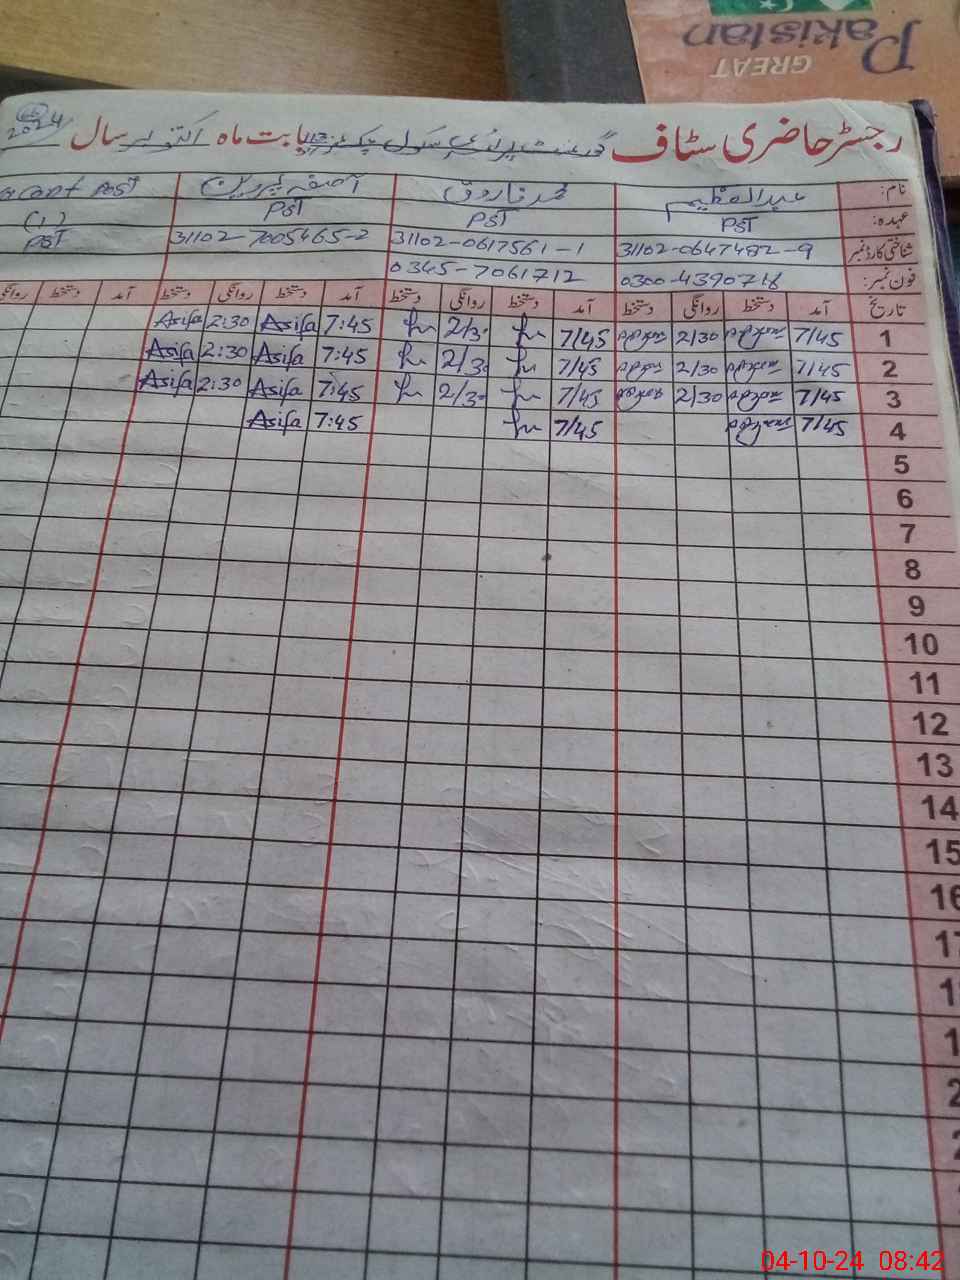 GREAT
Pakistan
رجسٹر حاضری سٹاف گورنمنٹ پرائمری سکول بابت ماہ اکتوبر سال 2024
نام: عبدالعظیم محمد فاروق آصفہ پروین Vacant Post
عہدہ: PST PST PST (1)
شناختی کارڈ نمبر 31102-0647482-9 31102-0617561-1 31102-7005465-2 PST
فون نمبر: 0300-4390718 0345-7061712
تاریخ آمد دستخط روانگی دستخط آمد دستخط روانگی دستخط آمد دستخط روانگی دستخط آمد دستخط روانگی
1 7/45 2/30 7/45 2/30 7:45 Asifa 2:30 Asifa
2 7/45 2/30 7/45 2/30 7:45 Asifa 2:30 Asifa
3 7/45 2/30 7/45 2/30 7:45 Asifa 2:30 Asifa
4 7/45 7/45 7:45 Asifa
5
6
7
8
9
10
11
12
13
14
15
16
17
04-10-24 08:42